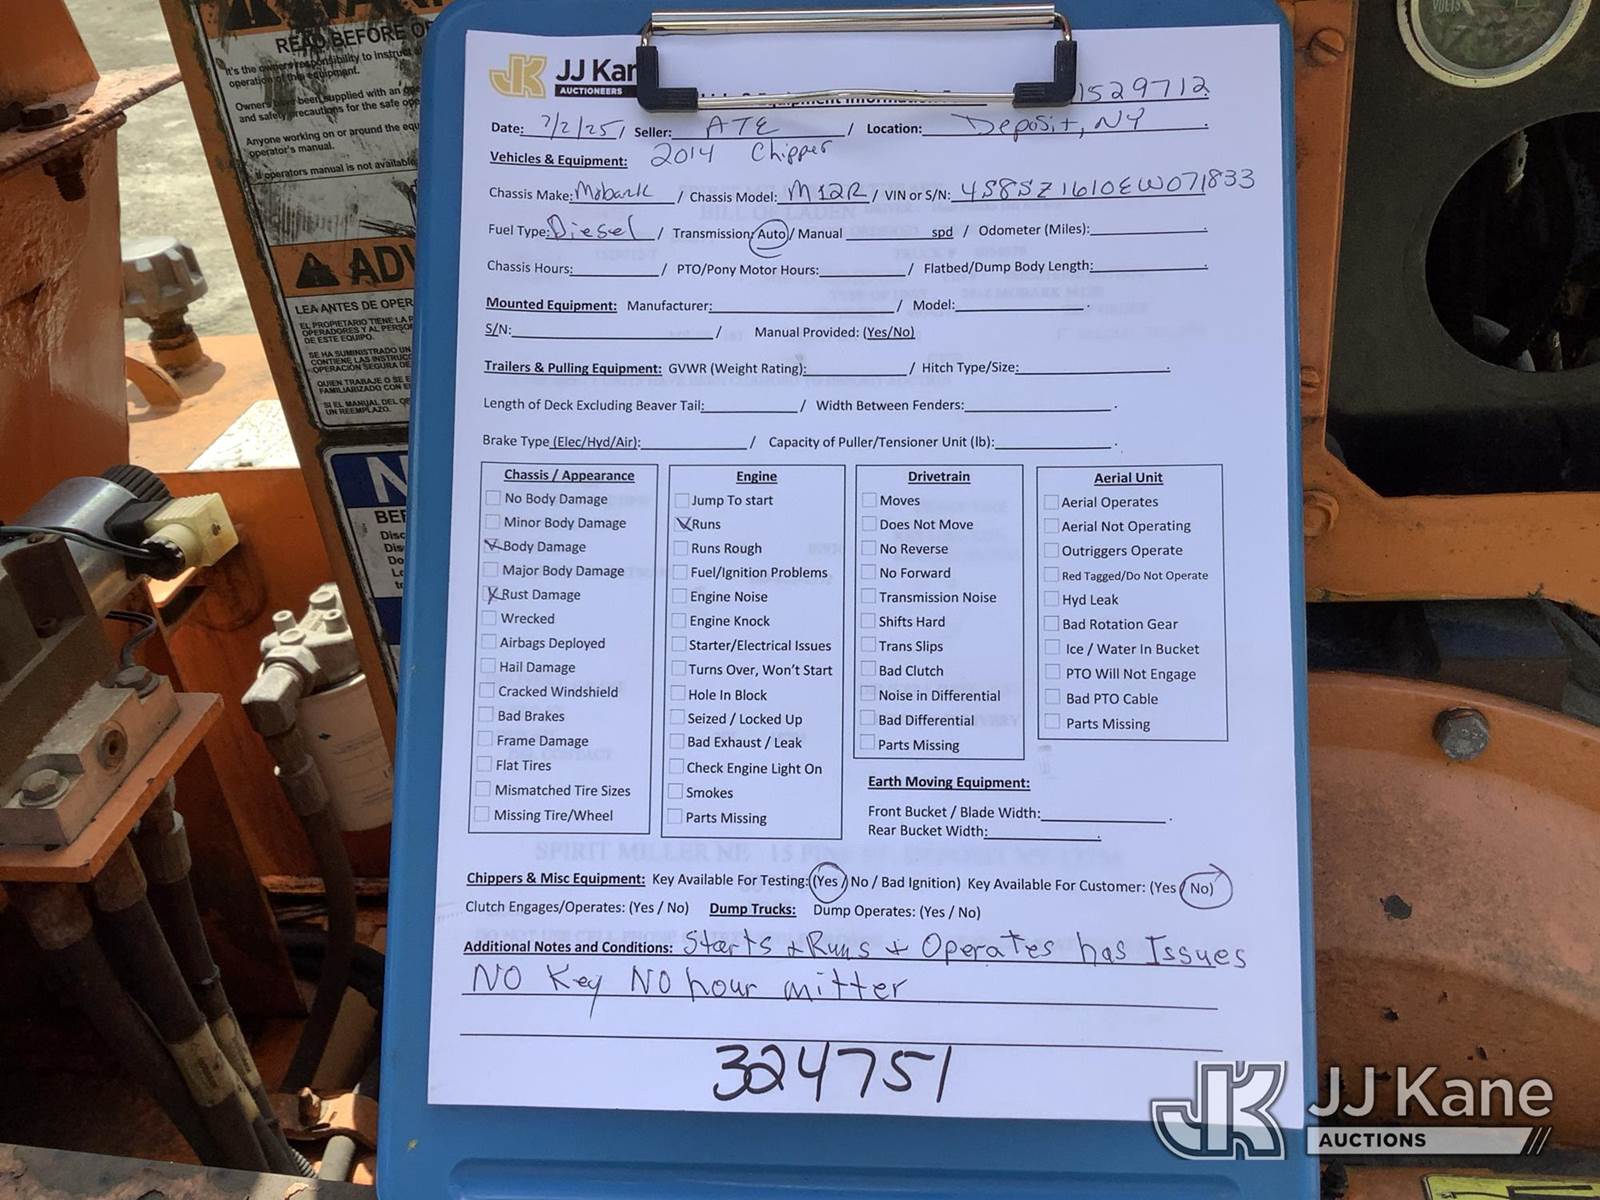 READ BEFORE O
It's the owners responsibility to instruct
operation of this equipment.
Owners have been supplied with an
and safety precautions for the safe
Anyone working on or around the equ
operator's manual.
If operators manual is not available
ADV
LEA ANTES DE OPER
EL PROPIETARIO TIENE LA
OPERADORES Y AL PERSON
DE ESTE EQUIPO.
SE HA SUMINISTRADO UN
CONTIENE LAS INSTRUCC
OPERACIÓN SEGURA DE
QUIEN TRABAJE O SE
FAMILIARIZADO CON E
SI EL MANUAL DEL
UN REEMPLAZO.
VOLTS
JK JJ Kan
AUCTIONEERS
& Equipment Information
1529712
Date: 7/2/25 / Seller: ATE / Location: Deposit, NY
Vehicles & Equipment: 2014 Chipper
Chassis Make: Mobark / Chassis Model: M12R / VIN or S/N: 4S8SZ1610EW071833
Fuel Type: Diesel / Transmission: Auto / Manual spd / Odometer (Miles):
Chassis Hours: / PTO/Pony Motor Hours: / Flatbed/Dump Body Length:
Mounted Equipment: Manufacturer: / Model: .
S/N: / Manual Provided: (Yes/No)
Trailers & Pulling Equipment: GVWR (Weight Rating): / Hitch Type/Size: .
Length of Deck Excluding Beaver Tail: / Width Between Fenders: .
Brake Type (Elec/Hyd/Air): / Capacity of Puller/Tensioner Unit (lb): .
Chassis / Appearance
No Body Damage
Minor Body Damage
Body Damage
Major Body Damage
Rust Damage
Wrecked
Airbags Deployed
Hail Damage
Cracked Windshield
Bad Brakes
Frame Damage
Flat Tires
Mismatched Tire Sizes
Missing Tire/Wheel
Engine
Jump To start
Runs
Runs Rough
Fuel/Ignition Problems
Engine Noise
Engine Knock
Starter/Electrical Issues
Turns Over, Won't Start
Hole In Block
Seized / Locked Up
Bad Exhaust / Leak
Check Engine Light On
Smokes
Parts Missing
Drivetrain
Moves
Does Not Move
No Reverse
No Forward
Transmission Noise
Shifts Hard
Trans Slips
Bad Clutch
Noise in Differential
Bad Differential
Parts Missing
Aerial Unit
Aerial Operates
Aerial Not Operating
Outriggers Operate
Red Tagged/Do Not Operate
Hyd Leak
Bad Rotation Gear
Ice / Water In Bucket
PTO Will Not Engage
Bad PTO Cable
Parts Missing
Earth Moving Equipment:
Front Bucket / Blade Width: .
Rear Bucket Width: .
Chippers & Misc Equipment: Key Available For Testing: (Yes / No / Bad Ignition) Key Available For Customer: (Yes / No)
Clutch Engages/Operates: (Yes / No) Dump Trucks: Dump Operates: (Yes / No)
Additional Notes and Conditions: Starts & Runs + Operates has Issues
NO Key NO hour mitter
324751
JK JJ Kane
AUCTIONS